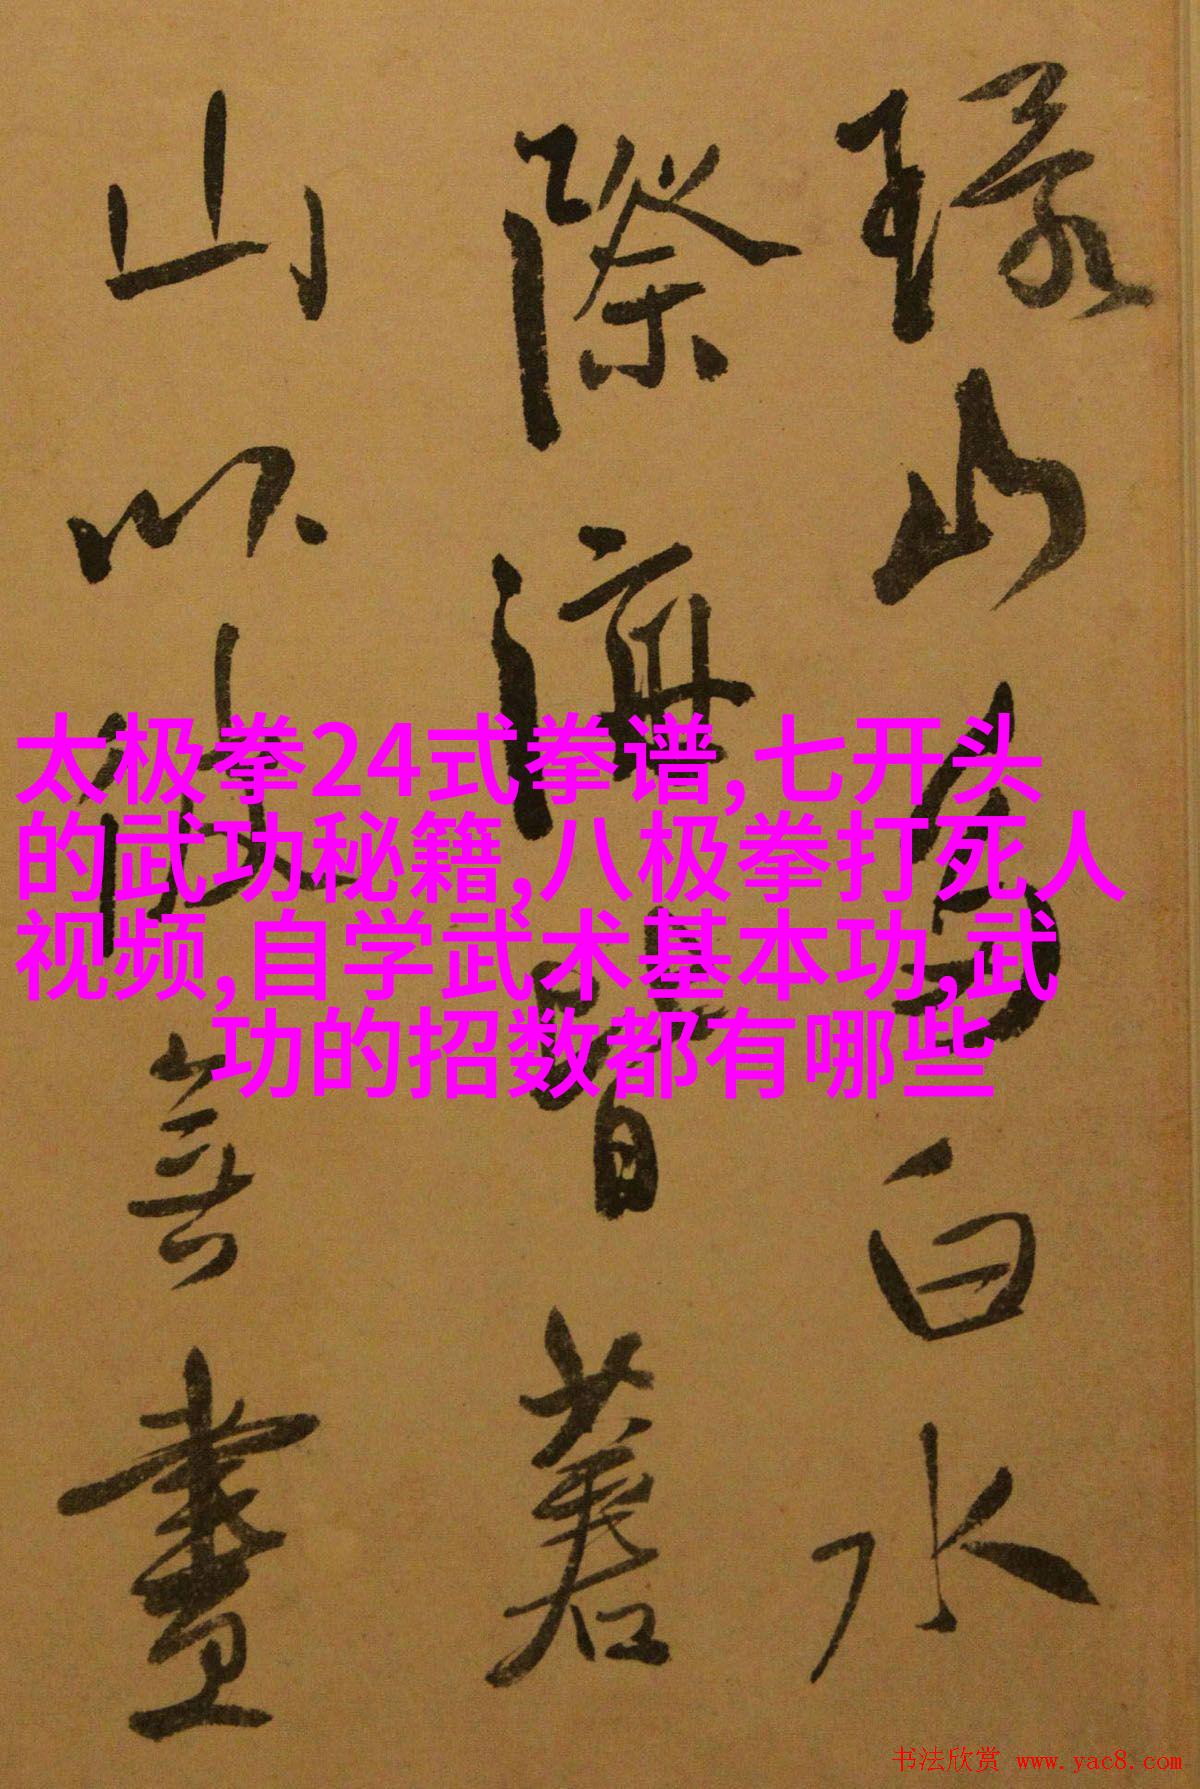 環山白水
際海
山以無
太极拳24式拳谱,七开头
的武功秘籍,八极拳打死人
视频,自学武术基本功,武
功的招数都有哪些
书法欣赏 www.yac8.com